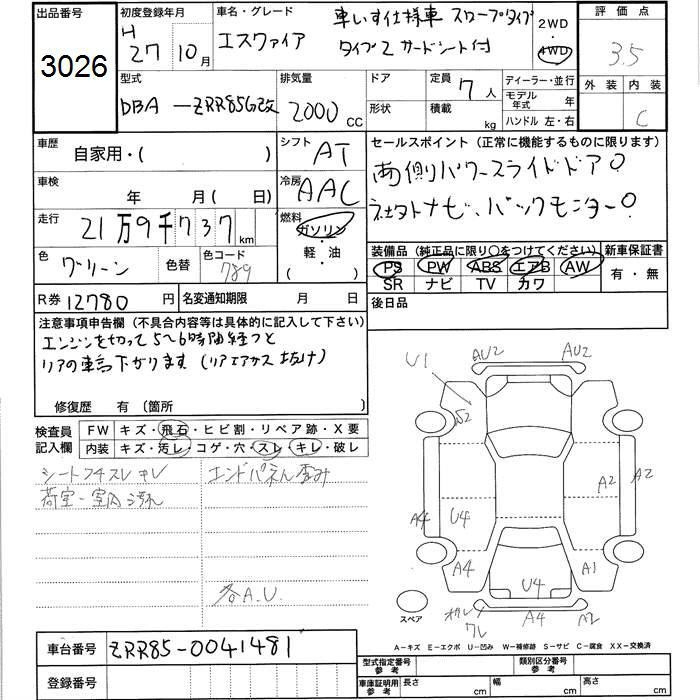 出品番号
3026
初度登録年月
H
27 10月
車名・グレード
エスクァイア
車いす仕様車 スロープタイプ
タイプ2 サードシート付
2WD
・
4WD
評価点
3.5
外装 内装
C
型式
DBA－ZRR85G改
排気量
2000 CC
ドア
形状
定員
7人
積載
kg
ディーラー・並行
モデル年式 年
ハンドル 左・右
車歴
自家用・( )
シフト
AT
車検
年 月( 日)
冷房
AAC
走行
21万9千737km
燃料
ガソリン
・
軽・油
( )
色
グリーン
色替
色コード
789
R券 12780円
名変通知期限 月 日
セールスポイント(正常に機能するものに限ります)
両側パワースライドドア○
社外ナビ、バックモニター○
装備品(純正品に限り○をつけてください)
PS PW ABS エアB AW
SR ナビ TV カワ
新車保証書
有・無
後日品
注意事項申告欄(不具合内容等は具体的に記入して下さい)
エンジンを切って5〜6時間経つと
リアの車高下がります(リアエアサス抜け)
修復歴 有(箇所 )
検査員
記入欄
FW キズ・飛石・ヒビ割・リペア跡・X要
内装 キズ・汚レ・コゲ・穴・スレ・キレ・破レ
シートフチスレ キレ
荷室・室内汚れ
エンドパネル歪み
各A.U.
U1
AU2
AU2
S2
A2
A2
A4
U4
A4
A1
U4
A4
A2
ワレ
スペア
A－キズ E－エクボ U－凹み W－補修跡 S－サビ C－腐食 XX－交換済
車台番号
ZRR85-0041481
登録番号
型式指定番号
参考
類別区分番号
参考
車庫証明用
参考
長さ cm
幅 cm
高さ cm